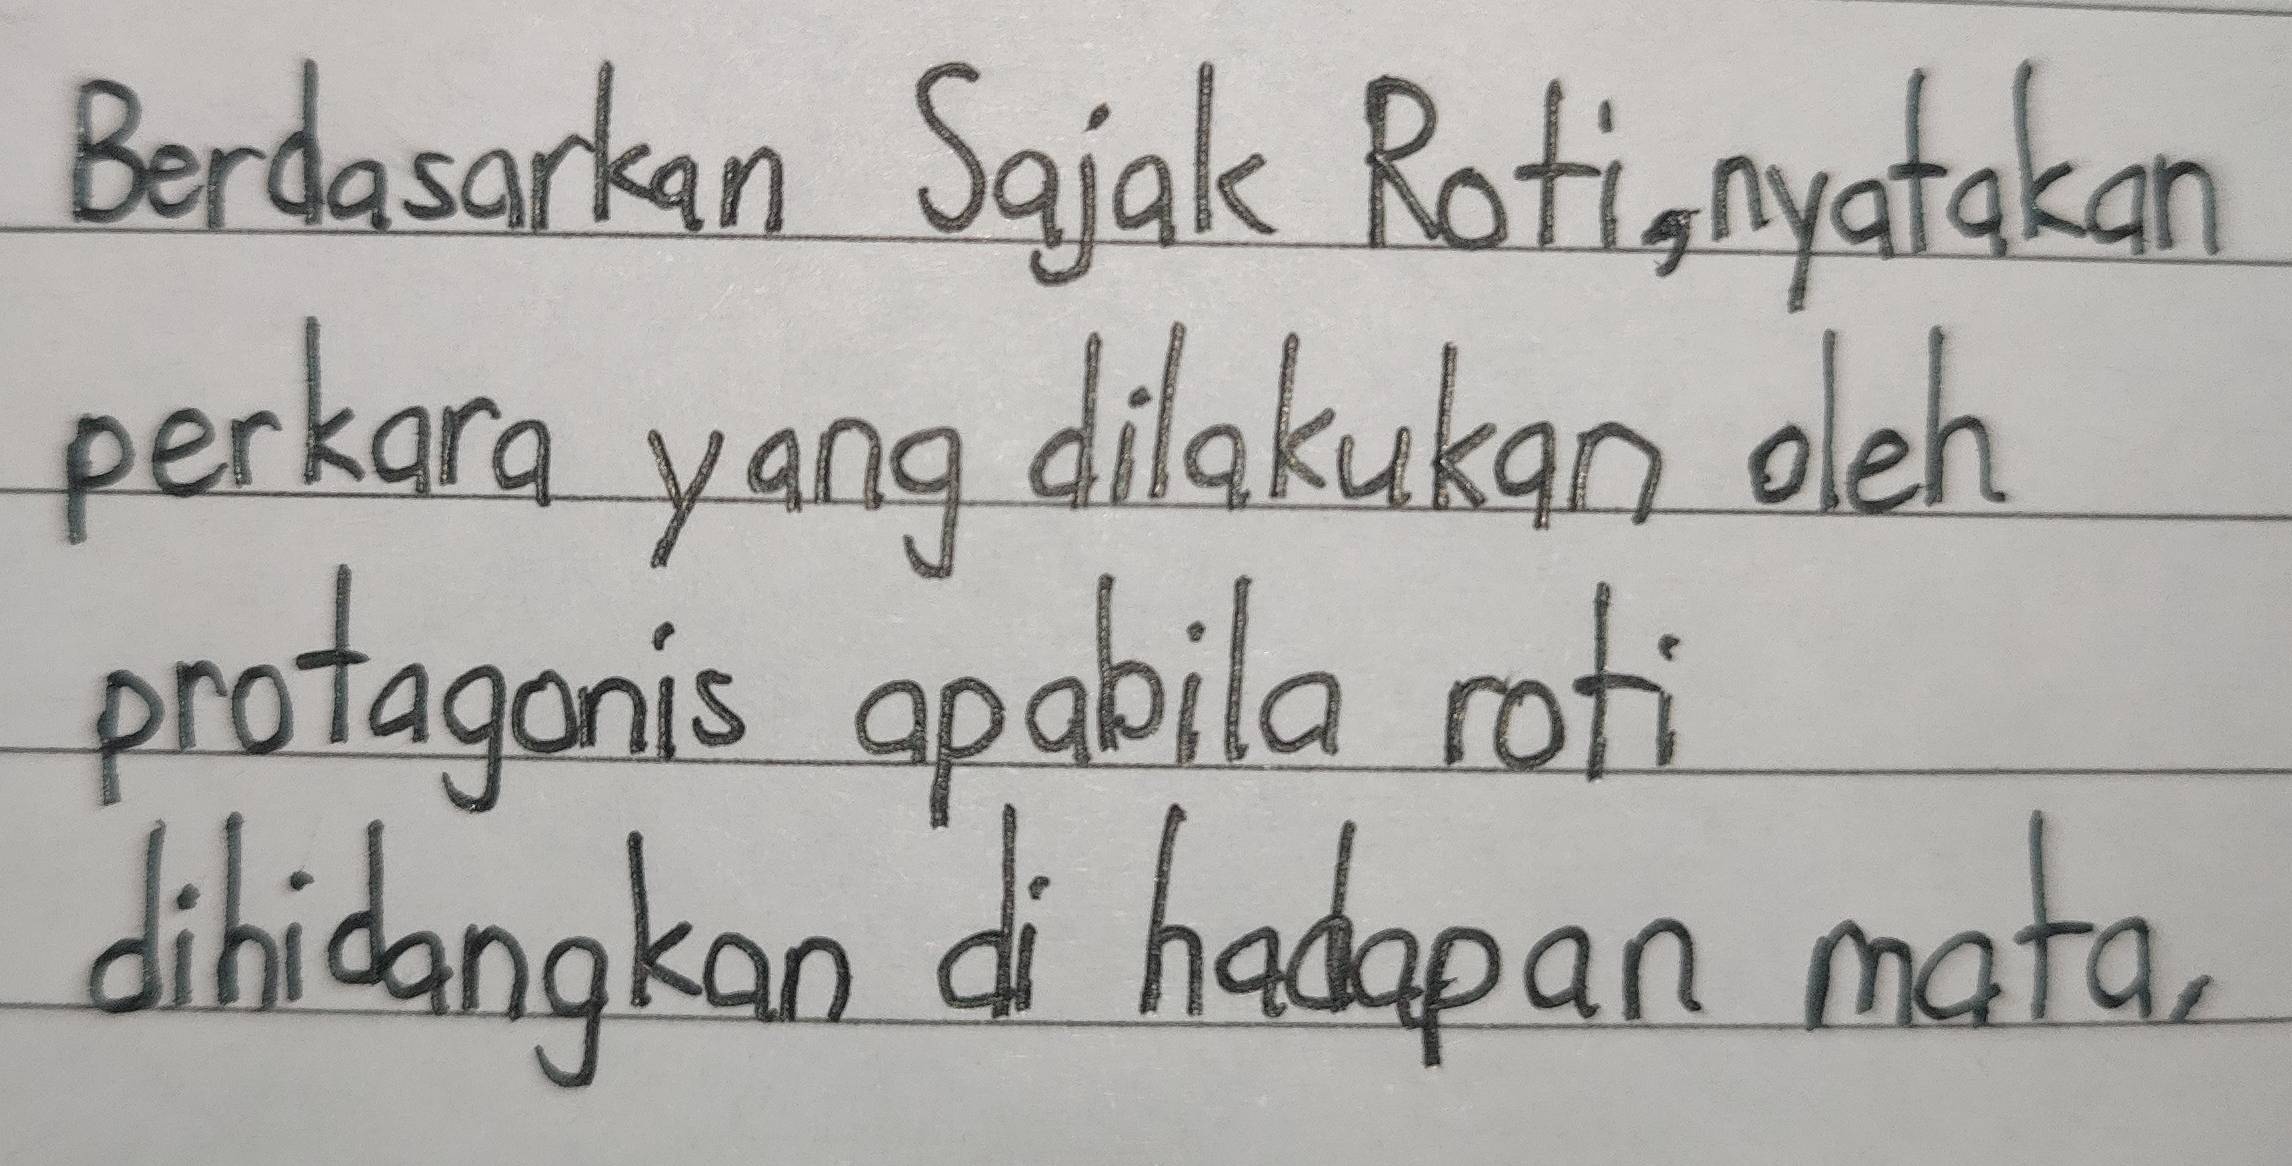 Berdasarkan Sajak Roti, nyatakan
perkara yang dilakukan oleh
protagonis apabila roti
dihidangkan di hadapan mata,